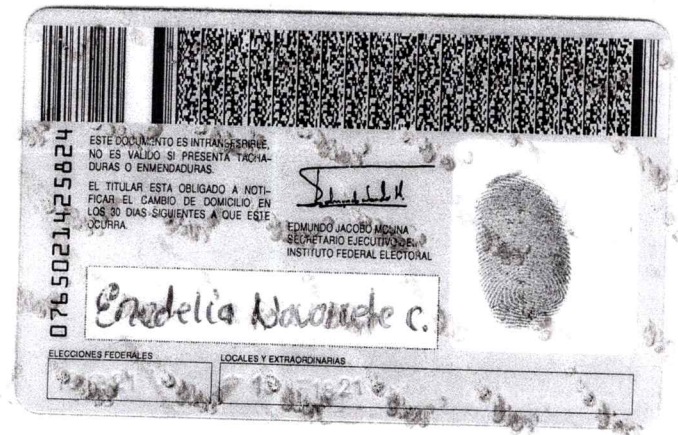 0765021425824
ESTE DOCUMENTO ES INTRANSFERIBLE,
NO ES VALIDO SI PRESENTA TACHA-
DURAS O ENMENDADURAS.
EL TITULAR ESTA OBLIGADO A NOTI-
FICAR EL CAMBIO DE DOMICILIO EN
LOS 30 DIAS SIGUIENTES A QUE ESTE
OCURRA.
EDMUNDO JACOBO MOLINA
SECRETARIO EJECUTIVO DEL
INSTITUTO FEDERAL ELECTORAL
Enedelia Navarrete C.
ELECCIONES FEDERALES
LOCALES Y EXTRAORDINARIAS